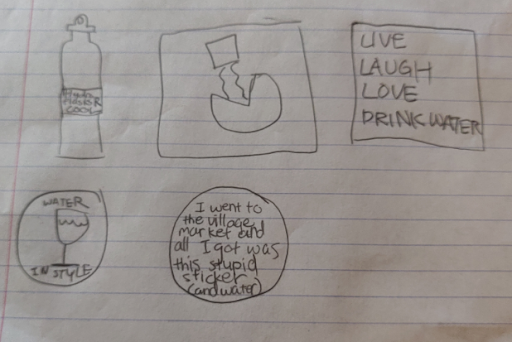 LIVE
LAUGH
LOVE
DRINK WATER
COOL
WATER
IN STYLE
I went to
the village
market and
all I got was
this stupid
sticker
(and water)